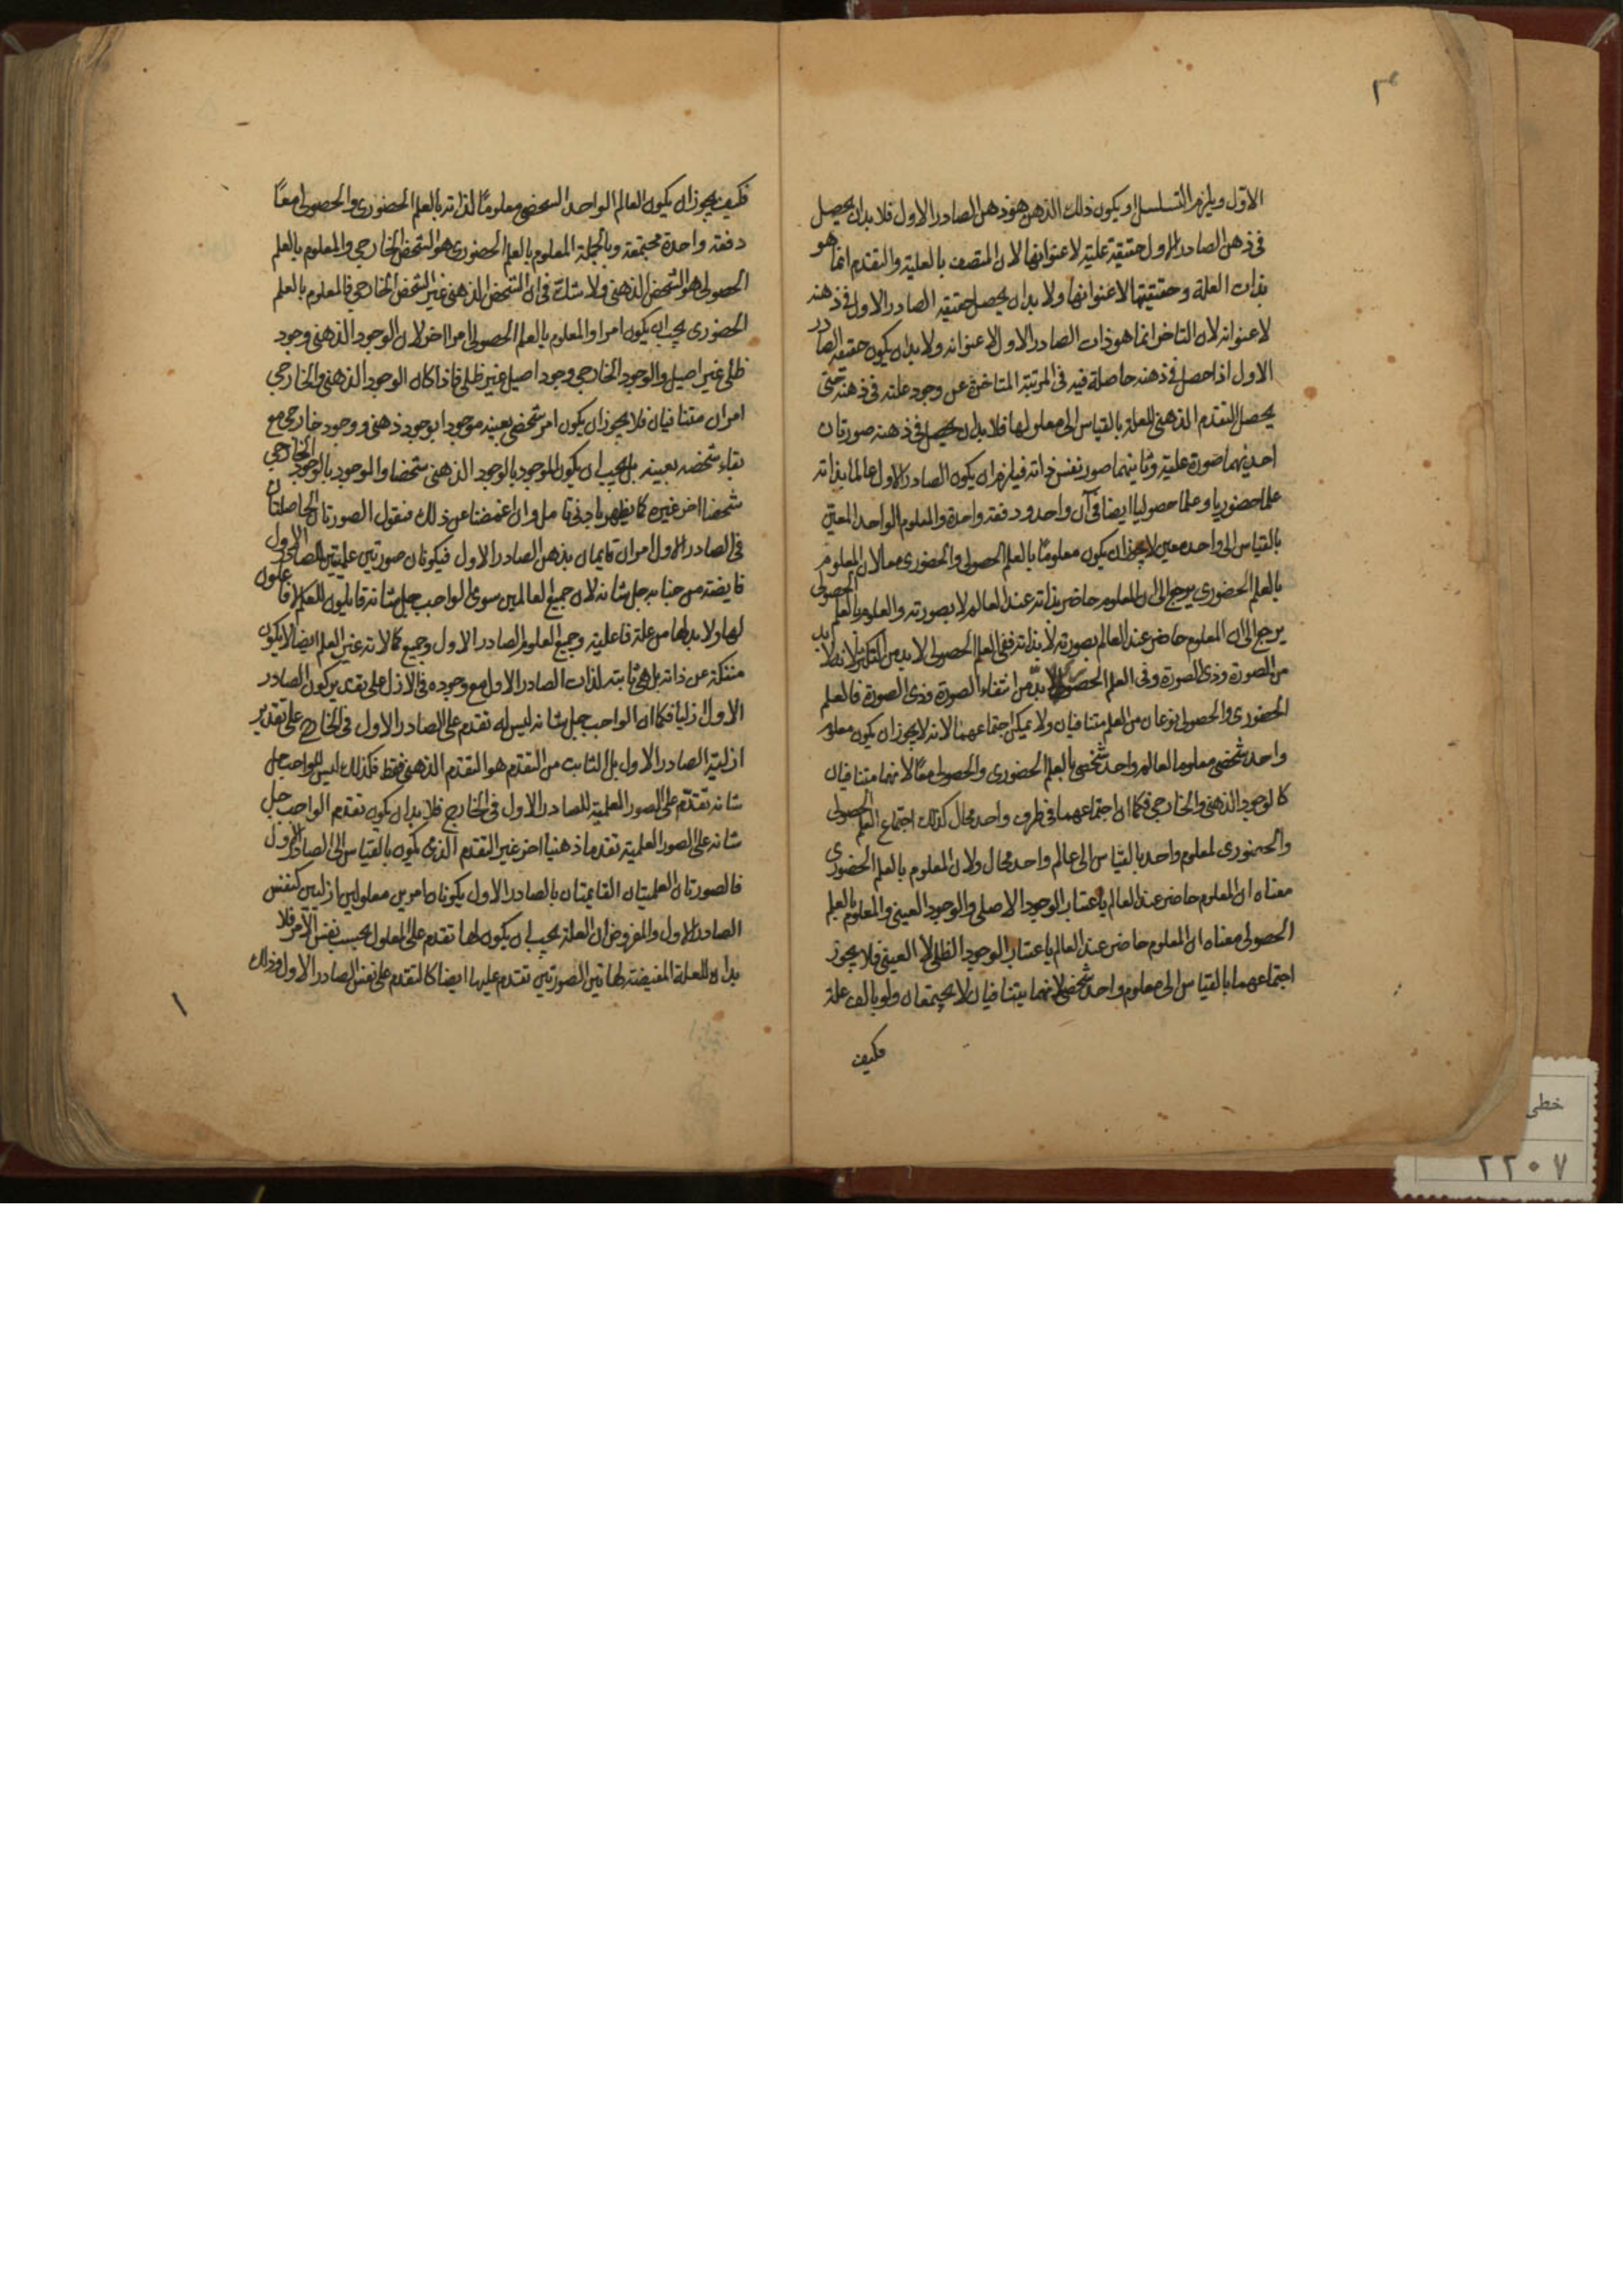 ٣
الاول ويلزم التسلسل او يكون ذلك الذهن هو ذهن الصادر الاول فلا بد ان يحصل
فى ذهن الصادر الاول حقيقة علية لا عنوانها لان المتصف بالعلية والتقدم انما هو
بذات العلة وحقيقتها لا عنوانها ولا بد ان يحصل حقيقة الصادر الاول فى ذهنه
لا عنوانه لان التاخر انما هو ذات الصادر الاول لا عنوانه ولا بد ان يكون حقيقة الصادر
الاول اذا حصل فى ذهنه حاصلة فيه فى المرتبة المتاخرة عن وجود علته فى ذهنه حتى
يحصل التقدم الذهنى للعلة بالقياس الى معلولها فلا بد ان يحصل فى ذهنه صورتان
احديهما صورة علية وثانيتهما صور نفس ذاته فيلزم ان يكون الصادر الاول عالما بذاته
علما حضوريا وعلما حصوليا ايضا فى آن واحد ودفعة واحدة والمعلوم الواحد المعين
بالقياس الى واحد معين لا يجوز ان يكون معلومًا بالعلم الحصولى والحضورى معا لان المعلوم
بالعلم الحضورى يرجع الى ان المعلوم حاضر بذاته عند العالم لا بصورته والمعلوم بالعلم الحصولى
يرجع الى ان المعلوم حاضر عند العالم بصورته لا بذاته ففى العلم الحصولى لا بد من التكثر لانه لا بد
من الصورة وذى الصورة وفى العلم الحضورى لا بدّ من انتفاء الصورة وذى الصورة فالعلم
الحضورى والحصولى نوعان من العلم متنافيان ولا يمكن اجتماعهما لانه لا يجوز ان يكون معلوم
واحد شخصى معلوما لعالم واحد شخصى بالعلم الحضورى والحصولى معًا لانهما متنافيان
كالوجود الذهنى والخارجى فكما ان اجتماعهما فى ظرف واحد محال كذلك اجتماع العلم الحصولى
والحضورى لمعلوم واحد بالقياس الى عالم واحد محال ولان المعلوم بالعلم الحضورى
معناه ان المعلوم حاضر عند العالم باعتبار الوجود الاصلى والوجود العينى والمعلوم بالعلم
الحصولى معناه ان المعلوم حاضر عند العالم باعتبار الوجود الظلى لا العينى فلا يجوز
اجتماعهما بالقياس الى معلوم واحد شخصى لانهما يتنافيان لا يجتمعان ولو بالف علة
فكيف
فكيف يجوز ان يكون العالم الواحد الشخصى معلومًا لذاته بالعلم الحضورى والحصولى معًا
دفعة واحدة مجتمعة وبالجملة المعلوم بالعلم الحضورى هو الشخص الخارجى والمعلوم بالعلم
الحصولى هو الشخص الذهنى ولا شك فى ان الشخص الذهنى غير الشخص الخارجى فالمعلوم بالعلم
الحضورى يجب ان يكون امرا والمعلوم بالعلم الحصولى امرا اخر لان الوجود الذهنى وجود
ظلى غير اصيل والوجود الخارجى وجود اصيل غير ظلى فاذا كان الوجود الذهنى والخارجى
امران متنافيان فلا يجوز ان يكون امر شخصى بعينه موجودا بوجود ذهنى ووجود خارجى مع
بقاء شخصه بعينه بل يجب ان يكون الموجود بالوجود الذهنى شخصا والموجود بالوجود الخارجى
شخصا اخر غيره كما يظهر بادنى تامل وان اغمضنا عن ذلك فنقول الصورتان الحاصلتان
فى الصادر الاول امران قايمان بذهن الصادر الاول فيكونان صورتين علميتين للصادر الاول
فايضة من جنابه جل شانه لان جميع العالمين سوى الواحب جل شانه قابليون للعلم لا فاعلون
لها ولا بد لها من علة فاعلية وجميع العلوم الصادر الاول وجميع كمالاته غير العلم ايضا لا يكون
منفكة عن ذاته بل هى ثابتة لذات الصادر الاول مع وجوده فى الازل على تقدير كون الصادر
الاول ازليا فكما ان الواجب جل شانه ليس له تقدم على الصادر الاول فى الخارج على تقدير
ازلية الصادر الاول بل الثابت من التقدم هو التقدم الذهنى فقط فكذلك ليس للواجب جل
شانه تقدّم على الصور العلمية للصادر الاول فى الخارج فلا بد ان يكون تقدم الواجب جل
شانه على الصور العلمية تقدما ذهنيا اخر غير التقدم الذى يكون بالقياس الى الصادر الاول
فالصورتان العلميتان القايمتان بالصادر الاول يكونان امرين معلولين ازليين كنفس
الصادر الاول والمفروض ان العلة يجب ان يكون لها تقدم على المعلول بحسب نفس الامر فلا
بد ان للعلة المفيضة لهاتين الصورتين تقدم عليها ايضا كالتقدم على نفس الصادر الاول وذلك
١
خطى
٢٢٠٧